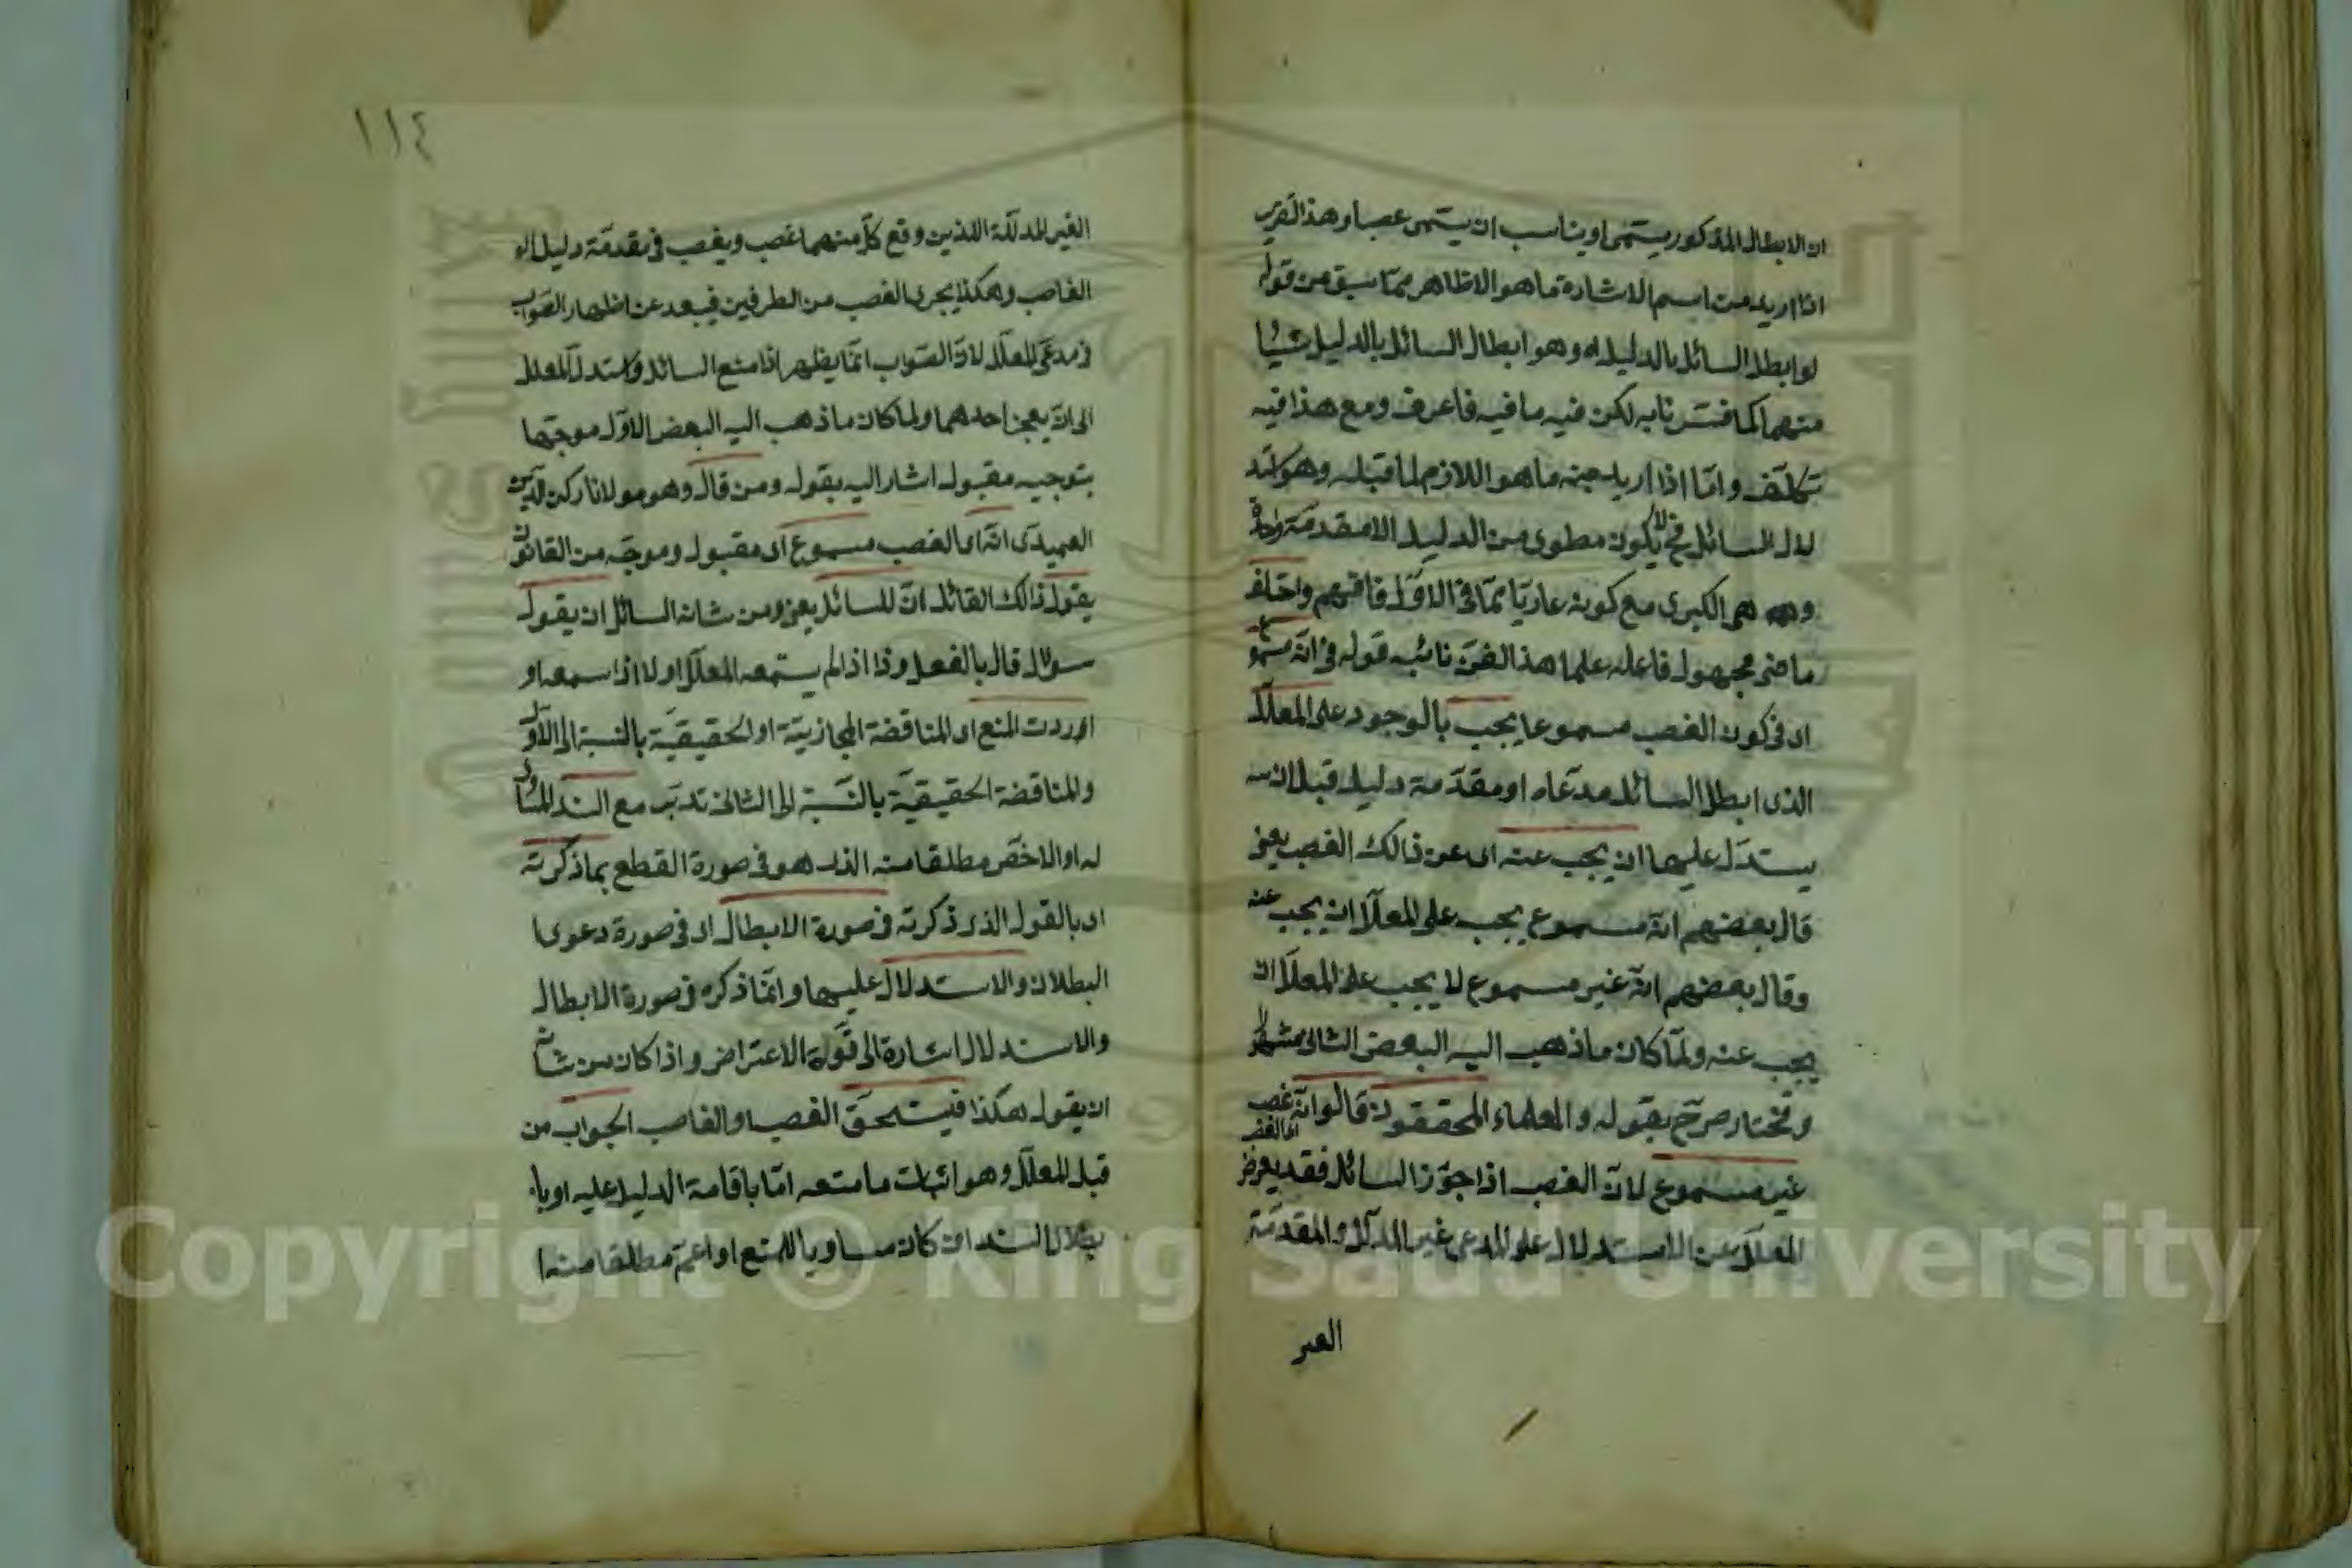 ان الابطال المذكور يسمى او يناسب ان يسمى غصبا وهذا التقرير
اذا اريد من اسم الاشارة ما هو الظاهر مما سبق من قوله
لو ابطل السائل بالدليل اه وهو ابطال السائل بالدليل شيأ
منهما كما فسرنا به لكن فيه ما فيه فاعرف ومع هذا فيه
تكلف واما اذا اريد منه ما هو اللازم لما قبله وهو استد
لال السائل فح لا يكون مطوى من الدليل الا مقدمة واحدة
وهه هى الكبرى مع كونه عاريا مما فى الاول فافهم واختلف
ماضى مجهول فاعله علما هذا الفن نائبه قوله فى انه مسمو
اى فى كون الغصب مسموعا يجب بالوجود على المعلل
الذى ابطل السائل مدعاه او مقدمة دليله قبل ان
يستدل عليهما ان يجب عنه اى عن ذالك الغصب يعنى
قال بعضهم انه مسموع يجب على المعلل ان يجب عنه
وقال بعضهم انه غير مسموع لا يجب على المعلل ان
يجب عنه ولما كان ما ذهب اليه البعض الثانى مشهورا
ومختار صرح بقوله والعلماء المحققون قالوا انه غصب
اى الغصب
غير مسموع لان الغصب اذا جوز السائل فقد يعرض
المعلل عن الاستدلال على المدعى غير المدلل والمقدمة
الغير
١١٤
الغير المدللة اللذين وقع كل منهما غصب ويغصب فى مقدمة دليل
الغاصب وهكذا يجرى الغصب من الطرفين فيبعد عن اظهار الصواب
فى مدعى المعلل لان الصواب انما يظهر اذا منع السائل واستدل المعلل
الى ان يعجز احدهما ولما كان ما ذهب اليه البعض الاول موجها
بتوجيه مقبول اشار اليه بقوله ومن قال وهو مولانا ركن الدين
العميدى انه اى الغصب مسموع اى مقبول وموجه من القانون
يقول ذالك القائل ان للسائل يعنى ومن شانه السائل ان يقول
سؤال قال بالفعل وذا اذا لم يستمعه المعلل اولا اذا سمعه او
اوردت المنع اى المناقضة المجازيتة او الحقيقية بالنسبة الى الاول
والمناقضة الحقيقية بالنسبة الى الثانى تدبر مع السند المساوى
له او الاخص مطلقا منه الذى هو فى صورة القطع بما ذكرته
اى بالقول الذى ذكرته فى صورة الابطال اى فى صورة دعوى
البطلان والاستدلال عليهما وانما ذكره فى صورة الابطال
والاستدلال اشارة الى قوة الاعتراض واذا كان من شانه
ان يقول هكذا فيستحق الغصب او الغاصب الجواب من
قبل المعلل وهو اثبات ما منعه اما باقامة الدليل عليه او با
بطال السند ان كان مساويا للمنع او اعم مطلقا منه
Copyright © King Saud University